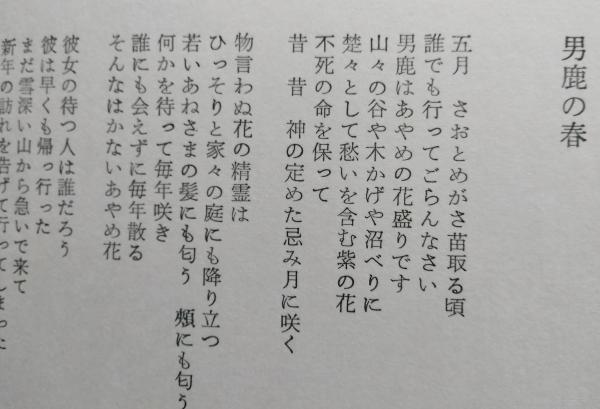 男鹿の春
五月　さおとめがさ苗取る頃
誰でも行ってごらんなさい
男鹿はあやめの花盛りです
山々の谷や木かげや沼べりに
楚々として愁いを含む紫の花
不死の命を保って
昔　昔　神の定めた忌み月に咲く
物言わぬ花の精霊は
ひっそりと家々の庭にも降り立つ
若いあねさまの髪にも匂う　頰にも匂う
何かを待って毎年咲き
誰にも会えずに毎年散る
そんなはかないあやめ花
彼女の待つ人は誰だろう
彼は早くも帰っ行った
まだ雪深い山から急いで来て
新年の訪れを告げて行ってしまった